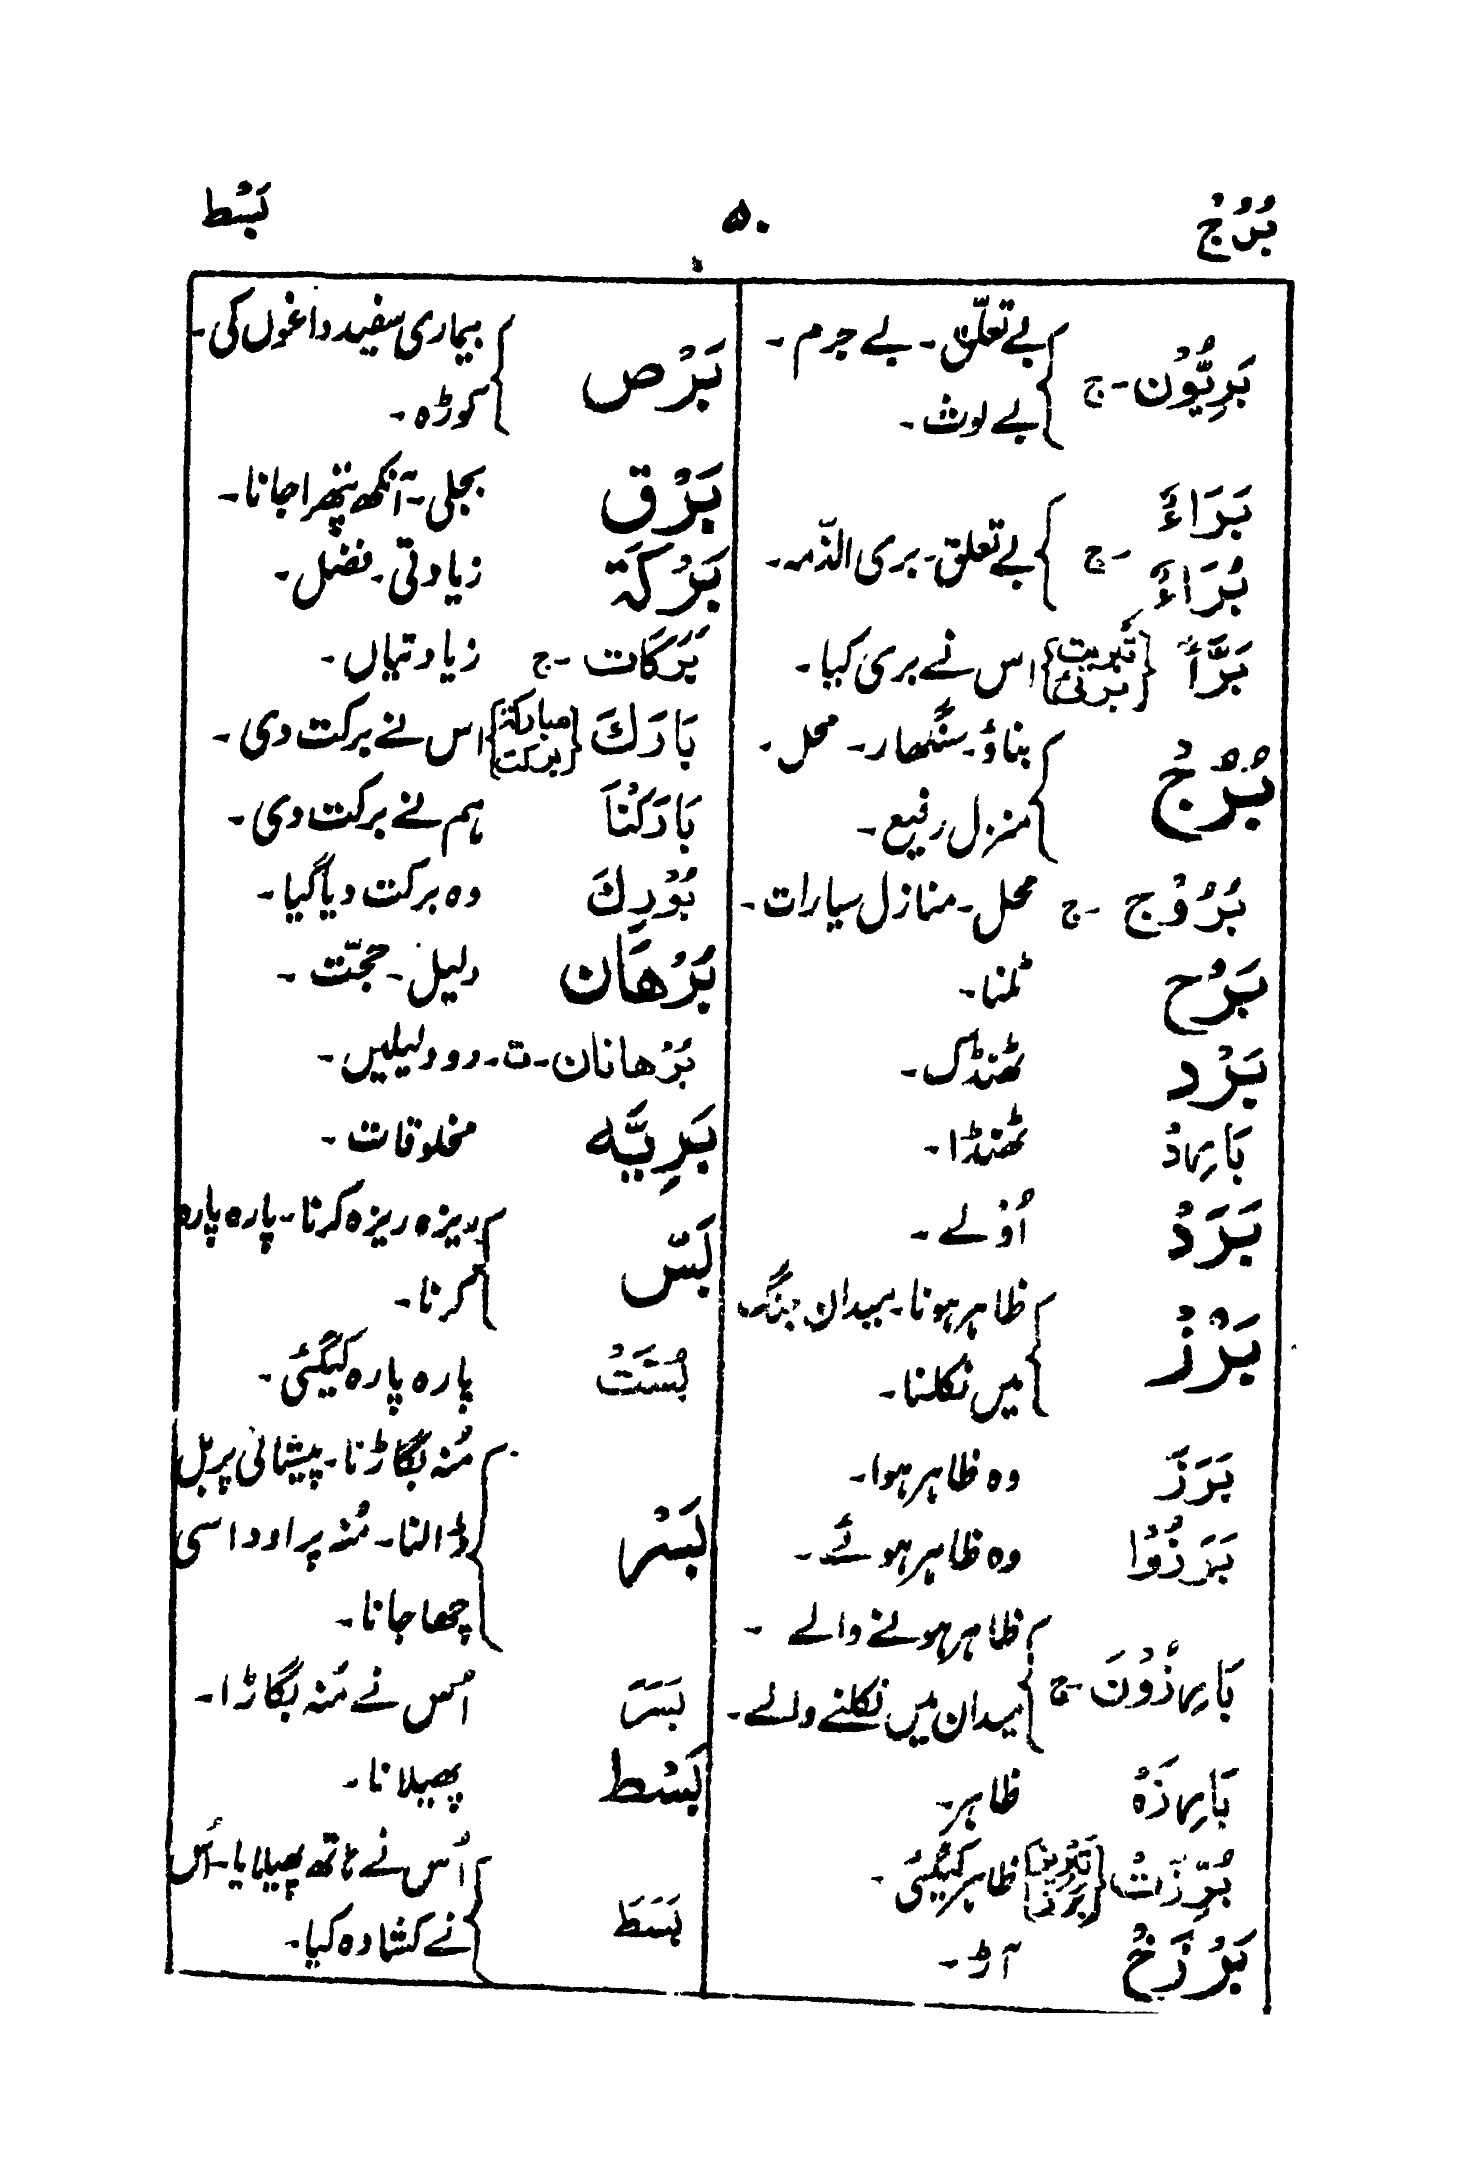 بُرُوْجُ
۵۰
بَسْط
بَرِیُّوْن - ج بے تعلّق - بے جرم -
بے لوث -
بَرَاءٌ
- ج بے تعلق - بری الذّمہ -
بُرَاءٌ
بَرَّأَ {تبریت / برئ} اس نے بری کیا -
بُرْجُ بناؤ - سنگھار - محل -
منزل رفیع -
بُرُوْج - ج محل - منازل سیارات -
بَرْح ٹلنا -
بَرْد ٹھنڈک -
بَارِدُ ٹھنڈا -
بَرَدُ اُوْلے -
بَرْزُ ظاہر ہونا - میدان جنگ
میں نکلنا -
بَرَزَ وہ ظاہر ہوا -
بَرَزُوْا وہ ظاہر ہوئے -
بَارِزُوْنَ - ج ظاہر ہونے والے -
میدان میں نکلنے والے -
بَارِزَہُ ظاہر -
بُرِّزَتُ {تَبْرِیز / بَرَزَ} ظاہر کیگئی -
بَرْزَخُ آڑ -
بَرْص بیماری سفید داغوں کی -
کوڑہ -
بَرْق بجلی - آنکھ پتھرا جانا -
بَرْکَة زیادتی - فضل -
بَرَکَات - ج زیادتیاں -
بَارَكَ {مبارکة / برکت} اس نے برکت دی -
بَارَکْنَا ہم نے برکت دی -
بُوْرِكَ وہ برکت دیا گیا -
بُرْهَان دلیل - حجّت -
بُرْهانان - ت - دو دلیلیں -
بَرِیَّه مخلوقات -
بَسّ ریزہ ریزہ کرنا - پارہ پارہ
کرنا -
بُسَّتُ پارہ پارہ کیگئی -
بَسْر مُنہ بگاڑنا - پیشانی پر بل
ڈالنا - مُنہ پر اوداسی
چھا جانا -
بَسَرَ اُس نے مُنہ بگاڑا -
بَسْط پھیلانا -
بَسَطَ اُس نے ہاتھ پھیلایا - اُس
نے کشادہ کیا -